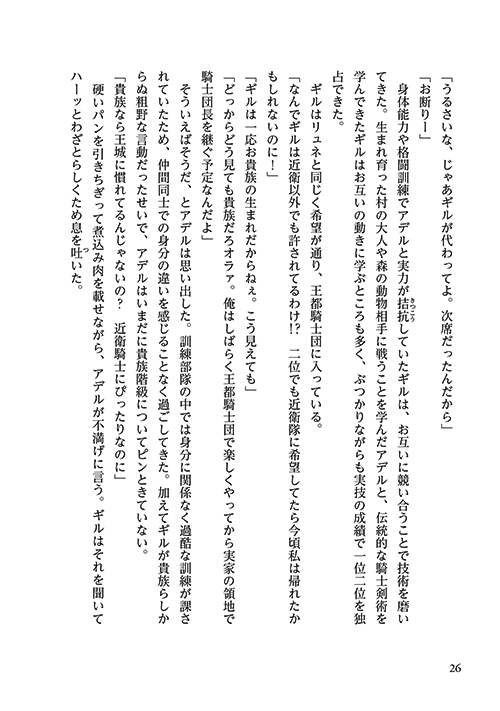 「うるさいな、じゃあギルが代わってよ。次席だったんだから」
「お断りー」
身体能力や格闘訓練でアデルと実力が拮抗していたギルは、お互いに競い合うことで技術を磨い
てきた。生まれ育った村の大人や森の動物相手に戦うことを学んだアデルと、伝統的な騎士剣術を
学んできたギルはお互いの動きに学ぶところも多く、ぶつかりながらも実技の成績で一位二位を独
占できた。
ギルはリュネと同じく希望が通り、王都騎士団に入っている。
「なんでギルは近衛以外でも許されてるわけ!?　二位でも近衛隊に希望してたら今頃私は帰れたか
もしれないのに！」
「ギルは一応お貴族の生まれだからねぇ。こう見えても」
「どっからどう見ても貴族だろオラァ。俺はしばらく王都騎士団で楽しくやってから実家の領地で
騎士団長を継ぐ予定なんだよ」
そういえばそうだ、とアデルは思い出した。訓練部隊の中では身分に関係なく過酷な訓練が課さ
れていたため、仲間同士での身分の違いを感じることなく過ごしてきた。加えてギルが貴族らしか
らぬ粗野な言動だったせいで、アデルはいまだに貴族階級についてピンときていない。
「貴族なら王城に慣れてるんじゃないの？　近衛騎士にぴったりなのに」
硬いパンを引きちぎって煮込み肉を載せながら、アデルが不満げに言う。ギルはそれを聞いて
ハーッとわざとらしくため息を吐いた。
26